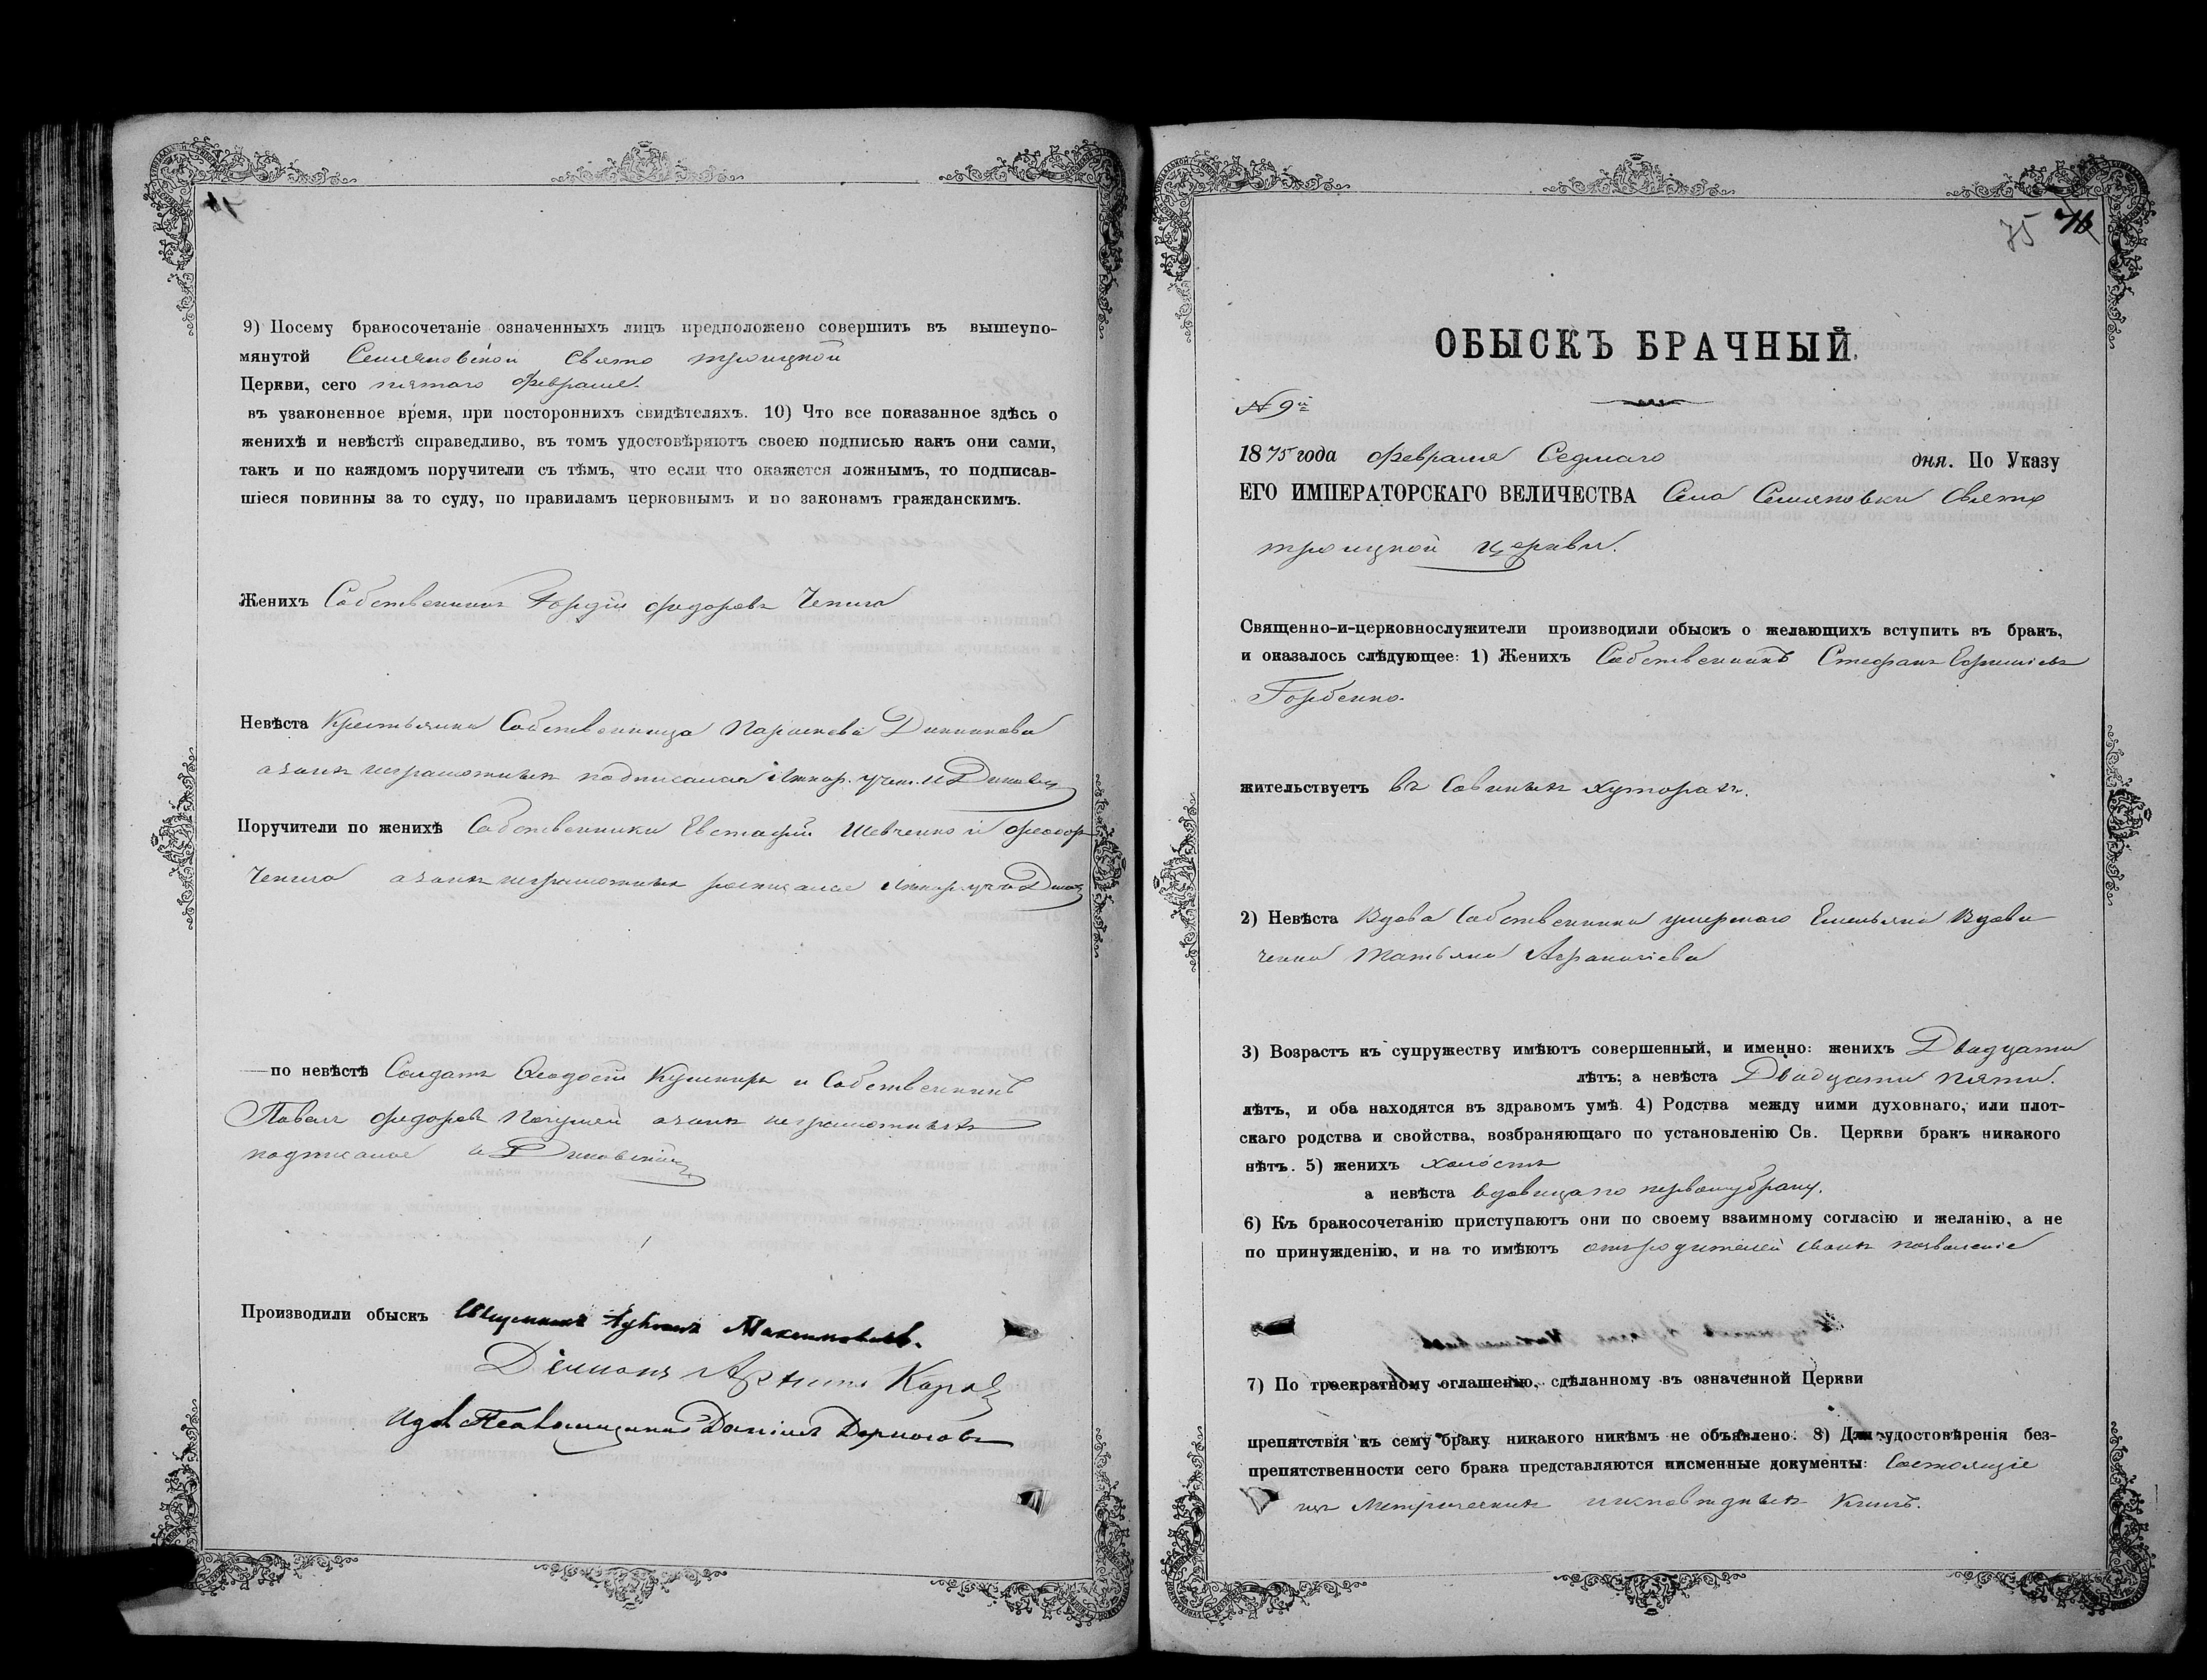 9) Посему бракосочетаніе означенныхъ лицъ предположено совершить въ вышеупо-
мянутой Семеновской Свято троицкой
Церкви, сего пятаго февраля.
въ узаконенное время, при постороннихъ свидѣтеляхъ. 10) Что все показанное здѣсь о
женихѣ и невѣстѣ справедливо, въ томъ удостовѣряютъ своею подписью какъ они сами,
такъ и по каждомъ поручители съ тѣмъ, что если что окажется ложнымъ, то подписав-
шіеся повинны за то суду, по правиламъ церковнымъ и по законамъ гражданскимъ.
Женихъ Собственникъ Гордій федоровъ Чепига
Невѣста Крестьянка Собственница Параскева
а за ихъ неграмотныхъ подписался
Поручители по женихѣ Собственники Евстафій Шевченко и феодоръ
Чепига а за ихъ неграмотныхъ
по невѣстѣ Солдатъ Ѳеодосій Кушниръ и Собственникъ
Павелъ федоровъ а за ихъ неграмотныхъ
подписался
Производили обыскъ Священникъ Максимовичъ.
Діяконъ
Даніилъ
75
ОБЫСКЪ БРАЧНЫЙ.
№ 9й
1875 года февраля Седмаго дня. По Указу
ЕГО ИМПЕРАТОРСКАГО ВЕЛИЧЕСТВА Села Семяновки Свято
троицкой церкви.
Священно-и-церковнослужители производили обыскъ о желающихъ вступить въ бракъ,
и оказалось слѣдующее: 1) Женихъ Собственникъ Стефанъ Ефиміевъ
Горбенко.
жительствуетъ въ Савиныхъ хуторахъ.
2) Невѣста Вдова Собственника умершаго Емельяна Вдови
ченка Татьяна Афанасіева
3) Возрастъ къ супружеству имѣютъ совершенный, и именно: женихъ Двадцати
лѣтъ; а невѣста Двадцати пяти.
лѣтъ, и оба находятся въ здравомъ умѣ. 4) Родства между ними духовнаго, или плот-
скаго родства и свойства, возбраняющаго по установленію Св. Церкви бракъ никакого
нѣтъ. 5) женихъ холостъ
а невѣста вдовица по первому браку.
6) Къ бракосочетанію приступаютъ они по своему взаимному согласію и желанію, а не
по принужденію, и на то имѣютъ отъ родителей своихъ позволеніе
7) По троекратному оглашенію, сдѣланному въ означенной Церкви
препятствія къ сему браку никакого никѣмъ не объявлено. 8) Для удостовѣренія без-
препятственности сего брака представляются писменные документы: Состоящіе
изъ Метрическихъ исповѣдныхъ Книгъ.